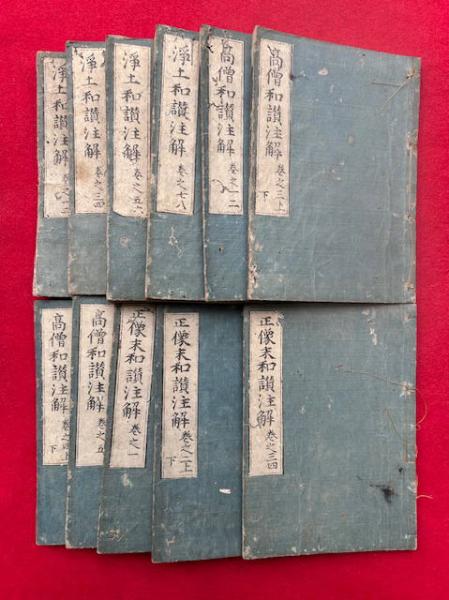 淨土和讃注解 巻之一二
淨土和讃注解 巻之三四
淨土和讃注解 巻之五六
淨土和讃注解 巻之七八
高僧和讃注解 巻之一二
高僧和讃注解 巻之三上下
高僧和讃注解 巻之四上下
高僧和讃注解 巻之五
正像末和讃注解 巻之一
正像末和讃注解 巻之二上下
正像末和讃注解 巻之三四